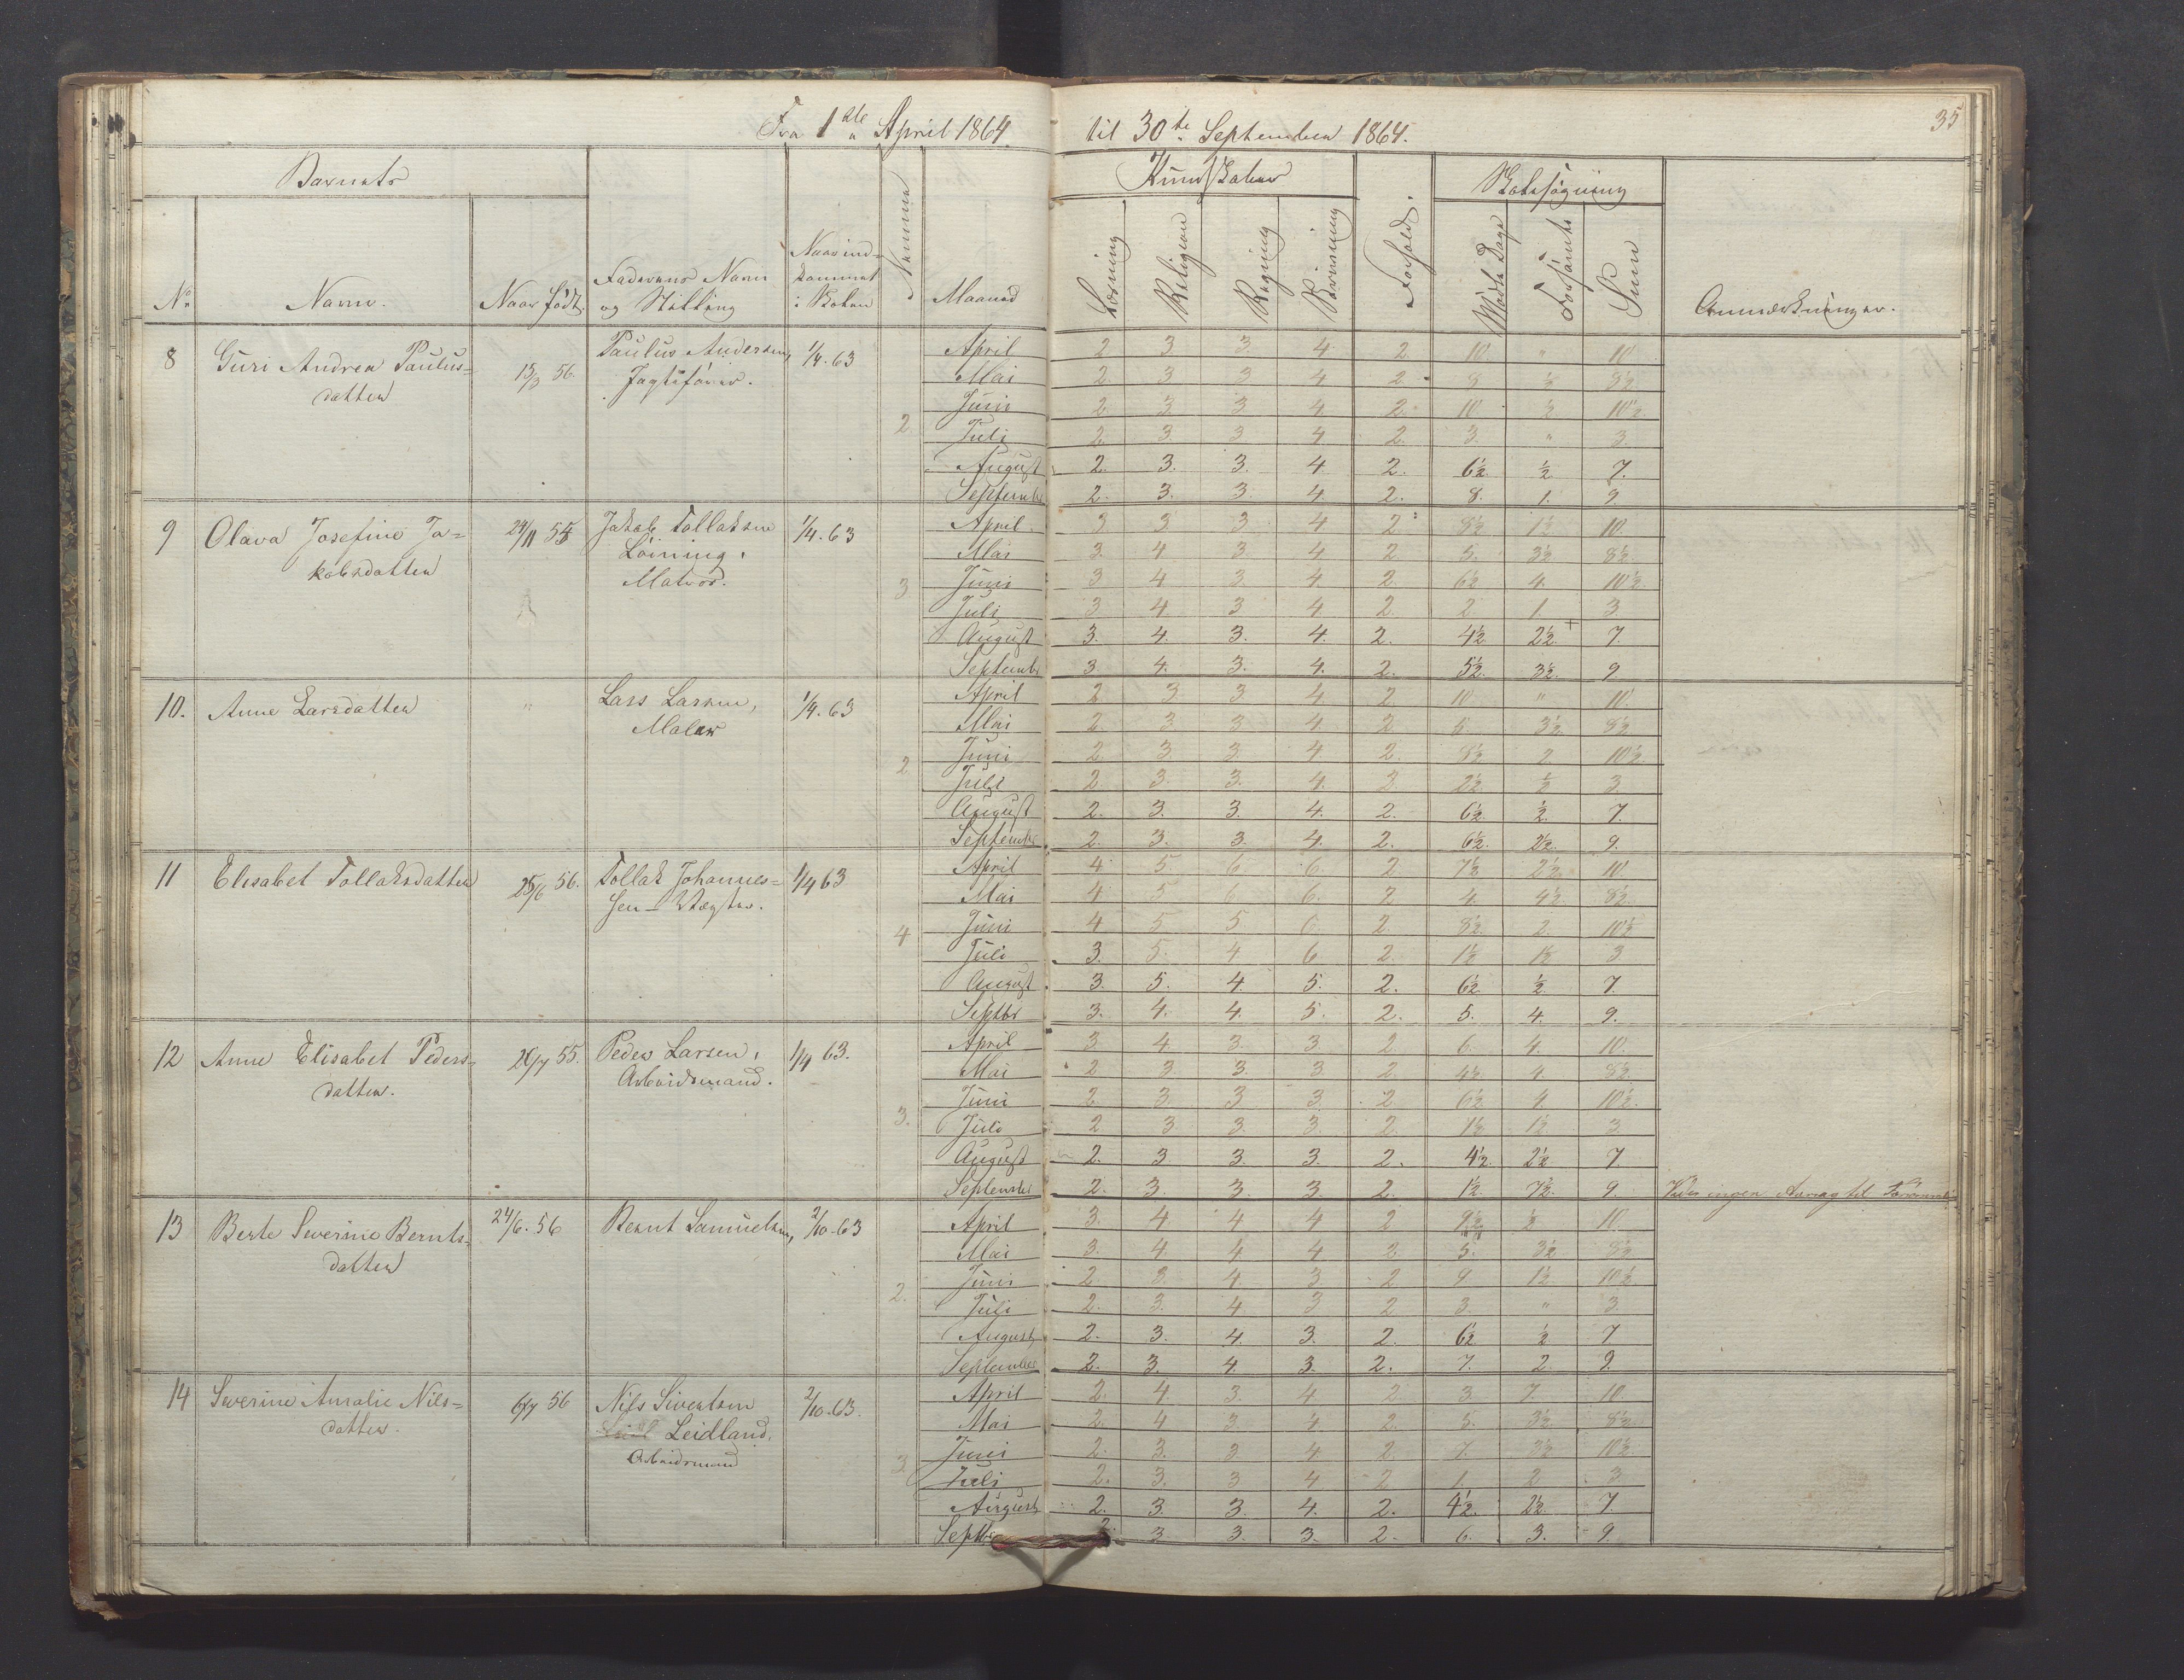 Fra 1ste April 1864. til 30te September 1864. 35
Barnets Kundskaber Skolesøgning
No Navn. Naar født. Faderens Navn og Stilling Naar ind=kommet i Skolen Nummer Maaned Læsning Religion Regning Skrivning Forhold. Mødte Dage Forsømte Sum Anmærkninger.
8 Guri Andrea Paulus=datter 13/3 56. Paulus Andersen, Jagtefører. 1/4. 63 2
April 2 3 3 4 2 10 " 10
Mai 2 3 3 4 2 8 ½ 8½
Juni 2 3 3 4 2 10 ½ 10½
Juli 2 3 3 4 2 3 " 3
August 2. 3. 3. 4. 2. 6½. ½. 7.
Septembr 2. 3. 3. 4. 2. 8. 1. 9
9 Olava Josefine Ja=kobsdatter 24/11 55 Jakob Tollaksen Løining, Matros. 1/4. 63 3
April 3 3 3 4 2 8½ 1½ 10.
Mai 3. 4 3 4 2 5. 3½ 8½
Juni 3 4 3 4 2. 6½ 4. 10½
Juli 3 4 3 4 2. 2. 1. 3.
August 3. 4. 3. 4. 2. 4½ 2½ 7.
Septembr 3. 4. 3. 4. 2. 5½. 3½ 9
10. Anne Larsdatter " Lars Larsen, Maler 1/4. 63 2
April 2 3 3 4 2 10 " 10.
Mai 2 3 3 4 2 5 3½ 8½
Juni 2 3 3 4 2. 8½ 2 10½
Juli 2 3. 3. 4. 2 2½ ½ 3
August 2. 3. 3. 4. 2. 6½. ½. 7.
Septembr 2. 3. 3. 4. 2. 6½. 2½. 9.
11 Elisabet Tollaksdatter 25/6 56. Tollak Johannes=sen – Vægter. 1/4 63 4
April 4 5 6 6 2 7½ 2½ 10
Mai 4 5 6 6 2 4. 4½ 8½
Juni 4 5 5 6 2. 8½ 2 10½
Juli 3. 5. 4 6 2. 1½ 1½ 3
August 3. 5. 4. 5. 2. 6½. ½. 7.
Septbr 3. 4. 4. 5. 2. 5. 4. 9.
12 Anne Elisabet Peders=datter. 28/7 55. Peder Larsen, Arbeidsmand. 1/4 63. 3.
April 3 4 3. 3 2 6. 4. 10.
Mai 2 3. 3. 3 2 4½. 4. 8½.
Juni 2 3. 3 3. 2 6½ 4. 10½.
Juli 2 3 3. 3. 2. 1½ 1½ 3
August 2. 3 3. 3. 2. 4½. 2½ 7.
September 2. 3. 3. 3. 2. 1½. 7½. 9. ingen til
13 Berte Severine Bernts=datter 24/6. 56 Bernt Samuelsen, 2/10. 63 2.
April 3. 4 4 4 2 9½ ½ 10
Mai 3. 4. 4. 4 2. 5. 3½ 8½
Juni 2 3. 4. 3 2 9 1½ 10½
Juli 2. 3. 4. 3 2 3. " 3.
August 2. 3. 4. 3. 2. 6½ ½ 7
September 2. 3. 4. 3. 2. 7. 2. 9.
14 Severine Amalie Nils=datter. 6/7 56 Nils Sivertsen Leidland, Arbeidsmand 2/10. 63. 3
April 2. 4. 3. 4 2 3. 7. 10.
Mai 2. 4 3. 4 2. 5. 3½. 8½
Juni 2. 3. 3 4. 2. 7. 3½ 10½
Juli 2. 3. 3 4 2 1. 2 3.
August 2. 3. 3. 4. 2. 4½. 2½. 7.
Septbr 2. 3 3. 3. 2. 6. 3. 9.